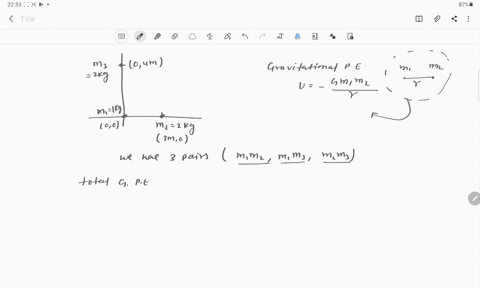 22:53
87%
Title
m3 = 2kg
(0, 4m)
m1 = 1kg
(0,0)
m2 = 2kg
(3m, 0)
Gravitational P.E.
U = - G m1 m2 / r
m1 m2
r
we hae 3 pairs ( m1m2, m1m3, m2m3)
total G. P.E